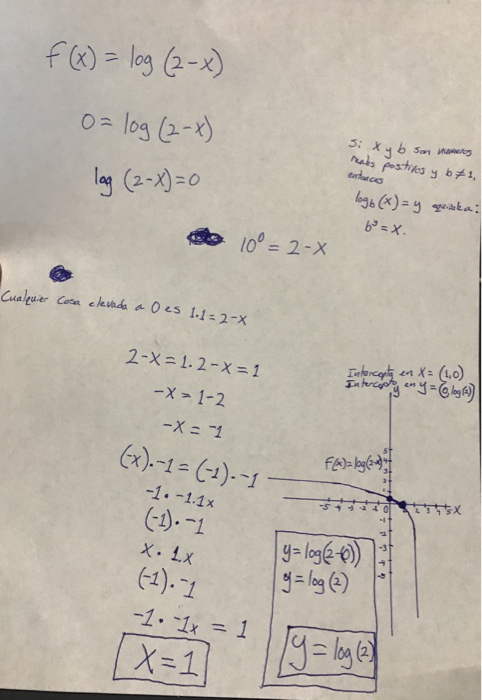 f(x) = log (2-x)
0 = log (2-x)
log (2-x) = 0
Si x y b son numeros
reales positivos y b ≠ 1,
entonces
log_b (x) = y equivale a:
b^y = x.
10^0 = 2-x
Cualquier cosa elevada a 0 es 1. 1 = 2-x
2-x = 1. 2-x = 1
-x = 1-2
-x = -1
(-x). -1 = (-1). -1
-1. -1.1x
(-1). -1
x. 1.x
(-1). -1
-1. -1x = 1
x = 1
Intercepto en x = (1,0)
Intercepto en y = (0, log(2))
y
F(x) = log(2-x)
-5 -4 -3 -2 -1 0 1 2 3 4 5 x
5
4
3
2
1
-1
-2
-3
-4
-5
y = log(2-0))
y = log (2)
y = log (2)